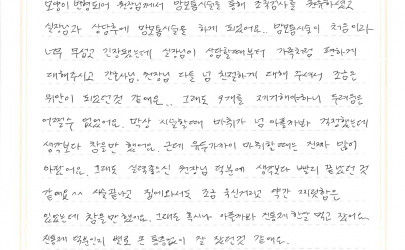 모양이 변형되어 원장님께서 맘모톰시술을 통해 조직검사를 권유하셨고
실장님과 상담후에 맘모톰시술을 하게 되었어요.. 맘모톰시술이 처음이라
너무 무섭고 긴장됐는데 실장님이 상담할때부터 가족처럼 편하게
대해주시고 간호사님, 원장님 다들 넘 친절하게 대해 주셔서 조금은
위안이 되었던것 같아요.. 그래도 9개를 제거해야하니 두려움은
어쩔수 없었어요. 막상 시술할때 마취가 넘 아플까봐 걱정했는데
생각보다 참을만 했어요. 근데 유두가까이 마취할때는 진짜 많이
아팠어요. 그래도 실력좋으신 원장님 덕분에 생각보다 빨리 끝났던 것
같애요 ^^ 시술끝나고 집에와서도 조금 욱신거리고 약간 찌릿함은
있었는데 참을만 했어요. 그래도 혹시나 아플까봐 진통제 한알 먹고 잤어요.
진통제 덕분인지 별로 큰 통증없이 잘 잤던것 같애요.